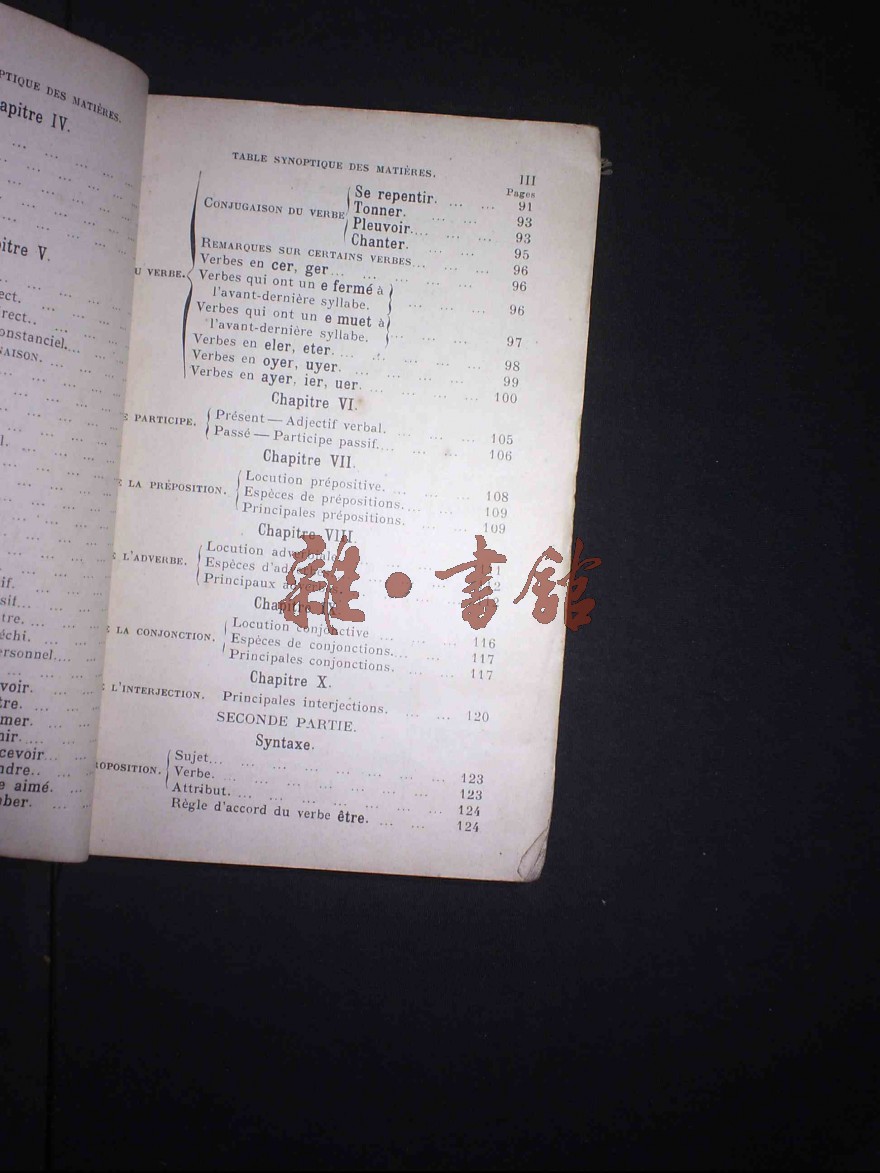 PTIQUE DES MATIÈRES.
apitre IV.
itre V.
ect.
irect..
onstanciel....
NAISON.
l.
if.
sif...
tre....
échi.
ersonnel....
voir.
tre.
mer.
nir....
cevoir...
ndre..
e aimé.
ber.
TABLE SYNOPTIQUE DES MATIÈRES. III
Pages
CONJUGAISON DU VERBE
Se repentir. ... ... 91
Tonner. ... ... 93
Pleuvoir.... ... ... 93
Chanter. ... ... 95
U VERBE.
REMARQUES SUR CERTAINS VERBES... ... ... 96
Verbes en cer, ger... ... ... ... ... 96
Verbes qui ont un e fermé à
l'avant-dernière syllabe. ... ... ... 96
Verbes qui ont un e muet à
l'avant-dernière syllabe. ... ... ... 97
Verbes en eler, eter. ... ... ... ... 98
Verbes en oyer, uyer. ... ... ... ... 99
Verbes en ayer, ier, uer. ... ... ... 100
Chapitre VI.
E PARTICIPE.
Présent — Adjectif verbal. ... ... ... 105
Passé — Participe passif.... ... ... 106
Chapitre VII.
E LA PRÉPOSITION.
Locution prépositive. ... ... ... 108
Espèces de prépositions.... ... ... 109
Principales prépositions. ... ... 109
Chapitre VIII.
E L'ADVERBE.
Locution adverbiale
Espèces d'adverbes
Principaux adverbes.
雜·書館
Chapitre IX.
E LA CONJONCTION.
Locution conjonctive ... ... ... 116
Espèces de conjonctions.... ... 117
Principales conjonctions. ... ... 117
Chapitre X.
E L'INTERJECTION. Principales interjections. ... ... 120
SECONDE PARTIE.
Syntaxe.
ROPOSITION.
Sujet... ... ... ... ... ... ... 123
Verbe. ... ... ... ... ... ... ... 123
Attribut. ... ... ... ... ... ... 124
Règle d'accord du verbe être. ... ... 124